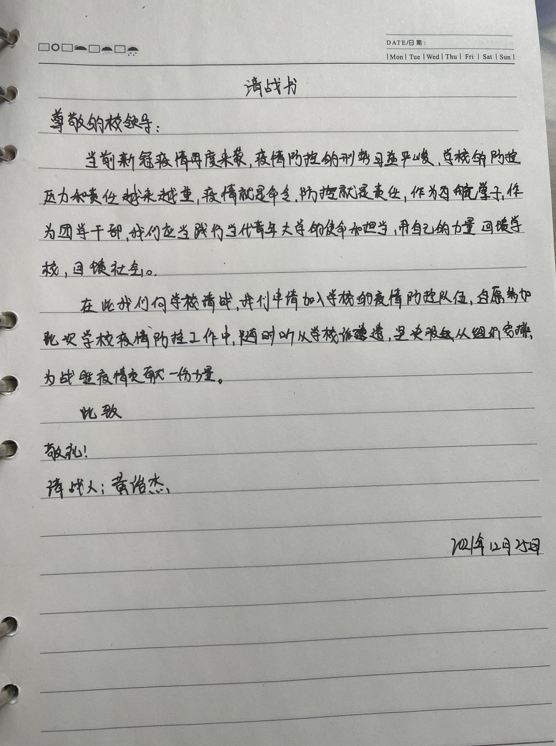 DATE/日期:
Mon Tue Wed Thu Fri Sat Sun
请战书
尊敬的校领导:
当前新冠疫情再度来袭,疫情防控的形势日益严峻,学校的防控
压力和责任越来越重,疫情就是命令,防控就是责任,作为学子,作
为团学干部,我们应当践行当代青年大学的使命和担当,用自己的力量回馈学
校,回馈社会。
在此我们向学校请战,我们申请加入学校的疫情防控队伍,自愿参加
此次学校疫情防控工作中,随时听从学校,坚决服从组织安排,
为战胜疫情贡献一份力量。
此致
敬礼!
请战人:黄治杰
2021年12月25日